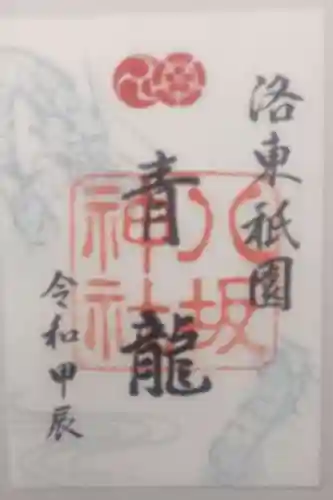 洛東祇園
青龍
八坂
神社
令和甲辰